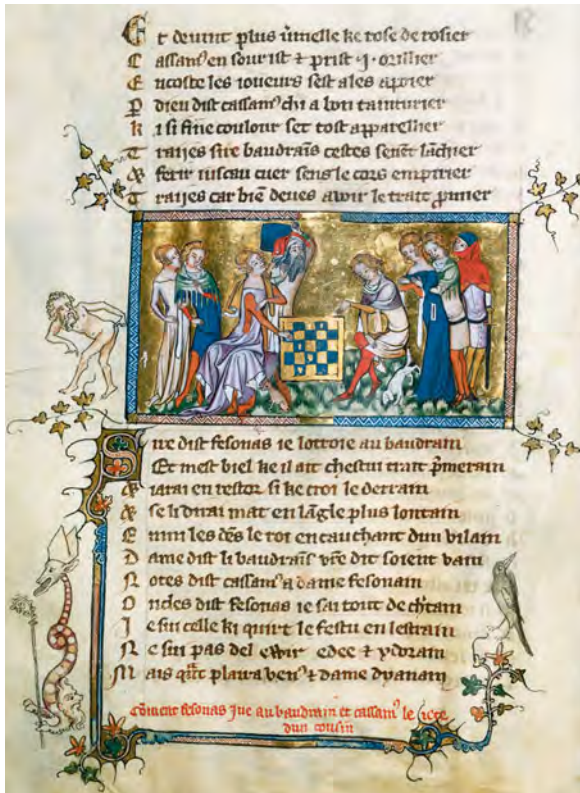 Et devint plus vmelle ke rose de rosier
Cassamꝰ en sourist ⁊ prist .j. orillier
Encoste les joueurs sest ales apoier
Per dieu dist cassamꝰ chi a bon tainturier
Ki si fine coulour set tost appareillier
Traijes sire baudrains cestes sevent lanchier
Et ferir iuscau cuer sens le cors empirier
Traijes car biē deves avoir le trait pmier
Sire dist fesonas ie lottroie au baudrain
Et mest biel ke il ait chestui trait pmerain
Et iarai en restor si ke croi le derrain
Et se li dirai mat en langle plus lontain
Enmi les dēs le roi en cauchant dun vilain
Dame dist li baudrains vre dit soient vain
Notes dist cassamꝰ a dame fesonain
Ondes dist fesonas ie sai tout de chtain
Je sui celle ki quirt le festu en lestrain
Ne sui pas del edee ⁊ ydorain
Mais plaira venꝰ ⁊ dame dyanain
Cōment fesonas jue au baudrain et cassamꝰ le
dun cousin